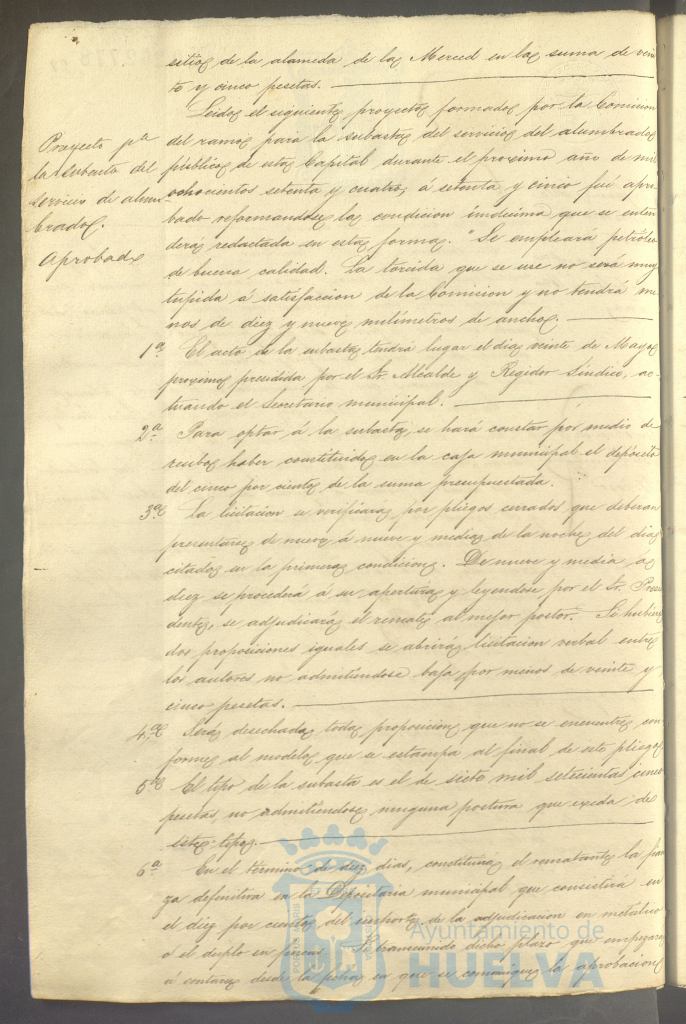 sitios de la alameda de la Merced en la suma de vein
te y cinco pesetas.
Proyecto pa
la subasta del
servicio de alum
brado.
Aprobado
Leido el siguiente proyecto formado por la Comision
del ramo para la subasta del servicio del alumbrado
público de esta Capital durante el procsimo año de mil
ochocientos setenta y cuatro á setenta y cinco fué apro
bado reformandose la condicion undecima que se enten
derá redactada en esta forma. "Se empleará petróleo
de buena calidad. La torcida que se use no será muy
tupida á satisfaccion de la Comicion y no tendrá me
nos de diez y nueve milímetros de ancho.
1ª El acto de la subasta tendrá lugar el dia veinte de Mayo
procsimo presidida por el Sr. Alcalde y Regidor Síndico, ac-
tuando el Secretario municipal.
2ª Para optar á la subasta, se hará constar por medio de
recibo haber constituido en la caja municipal el depósito
del cinco por ciento de la suma presupuestada.
3ª La licitacion se verificará por pliegos cerrados que deberan
presentarse de nueve á nueve y media de la noche del dia
citado en la primera condicion. De nueve y media á
diez se procederá á su apertura y leyendose por el Sr. Presi
dente, se adjudicará el remate al mejor postor. Si hubiere
dos proposiciones iguales se abrirá licitacion verbal entre
los autores no admitiendose baja por menos de veinte y
cinco pesetas.
4ª Será desechada toda proposicion que no se encuentre con
forme al modelo que se estampa al final de este pliego
5ª El tipo de la subasta es el de siete mil setecientas cinco
pesetas, no admitiendose ninguna postura que exceda de
este tipo.
6ª En el término de diez dias, constituirá el rematante la fian
za definitiva en la Depositaria municipal que consistirá en
el diez por ciento del importe de la adjudicacion en metálico
ó el duplo en fincas. Si trascurrido dicho plazo que empezará
á contarse desde la fecha en que se comunique la aprobacion
Ayuntamiento de
HUELVA